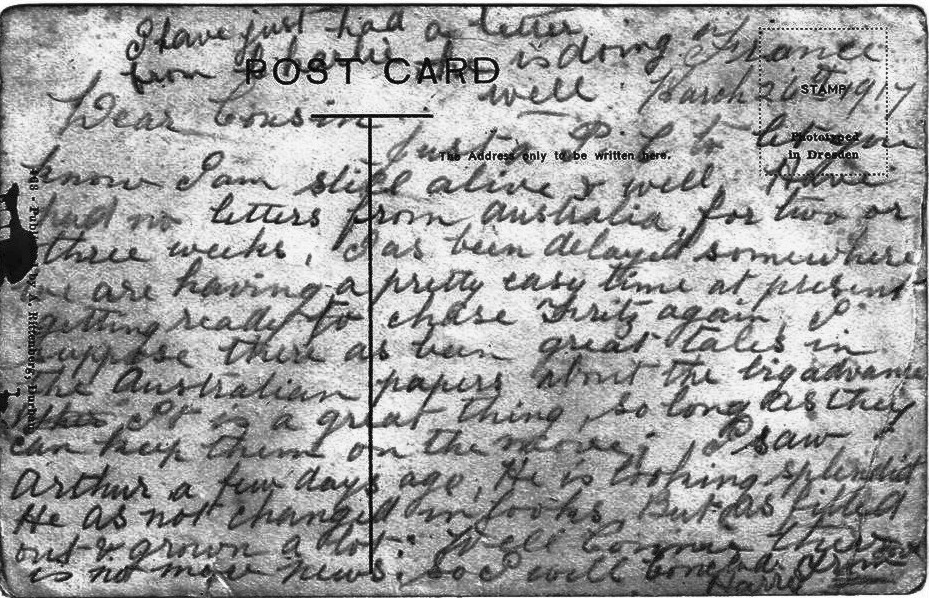 I have just had a letter
from Charlie he is doing
well
France
March 26th 1917
POST CARD
STAMP
Phototyped
in Dresden
The Address only to be written here.
Dear Cousin
Just a P.C. to let you
know I am still alive & well, Have
had no letters from Australia, for two or
three weeks, I as been delayed somewhere
we are having a pretty easy time at present
getting ready to chase Fritz again, I
suppose there as been great tales in
the Australian papers about the big advance
It is a great thing, so long as they
can keep them on the move; I saw
Arthur a few days ago, He is looking splendid
He as not changed in looks But as filled
out & grown a lot. Well Connie there
is no more news. so I will conclude From
Harry